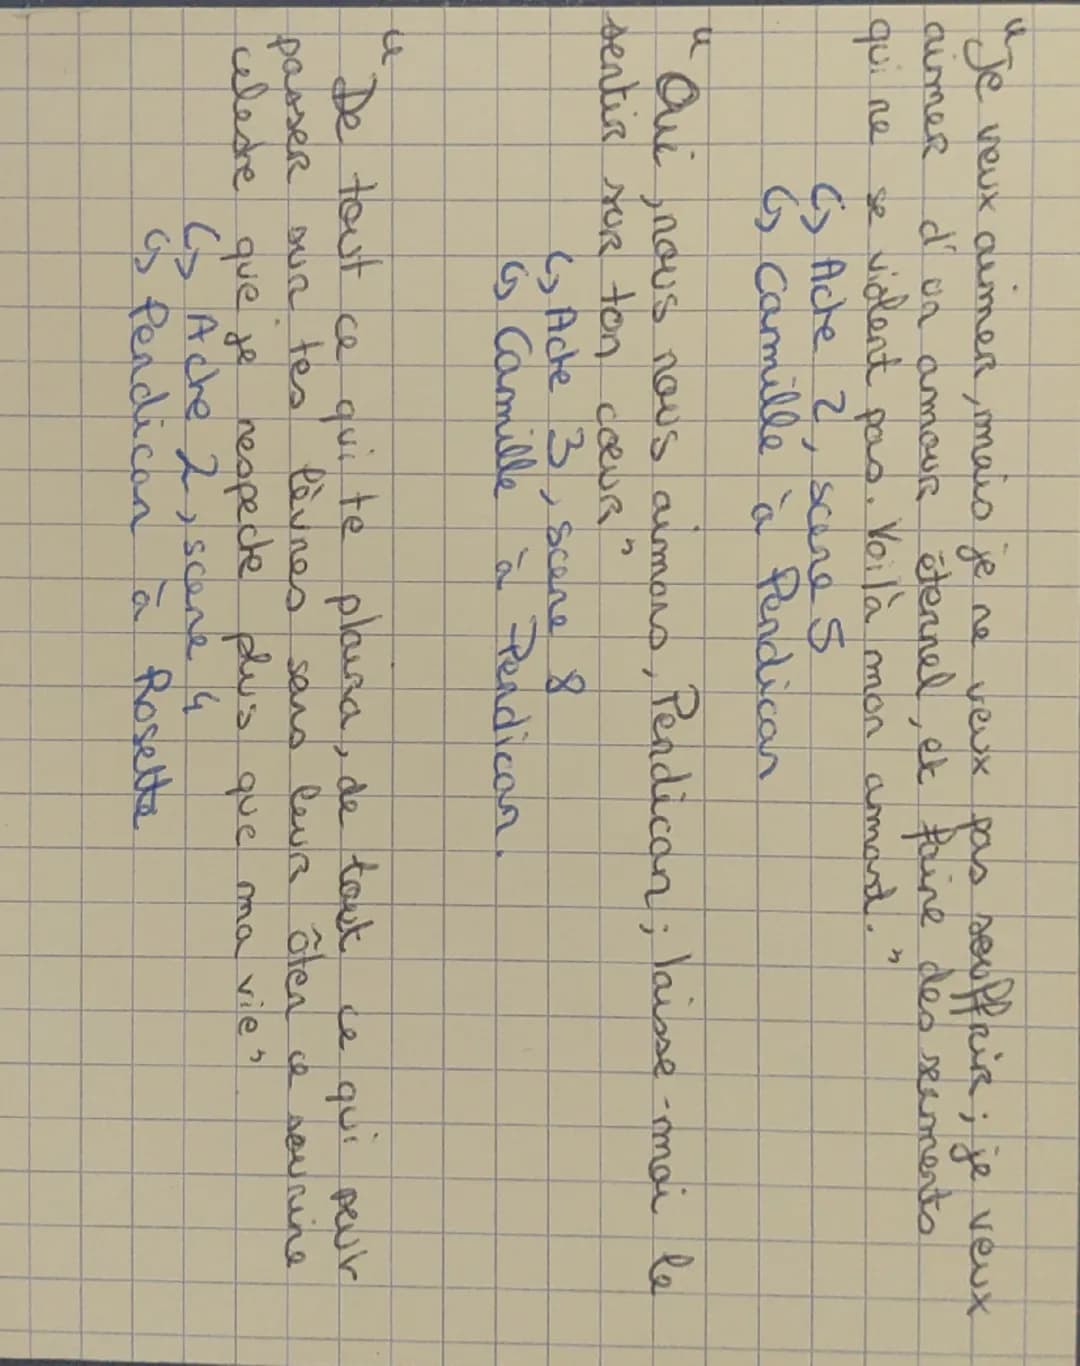 "Je veux aimer, mais je ne veux pas souffrir ; je veux
aimer d'un amour éternel, et faire des serments
qui ne se violent pas. Voilà mon amant."
↳ Acte 2, scene 5
↳ Camille à Perdican
"Oui, nous nous aimons, Perdican ; laisse-moi le
sentir sur ton cœur"
↳ Acte 3, scene 8
↳ Camille à Perdican.
"De tout ce qui te plaira, de tout ce qui peut
passer sur tes lèvres sans leur ôter ce sourire
celeste que je respecte plus que ma vie"
↳ Acte 2, scene 4
↳ Perdican à Rosette